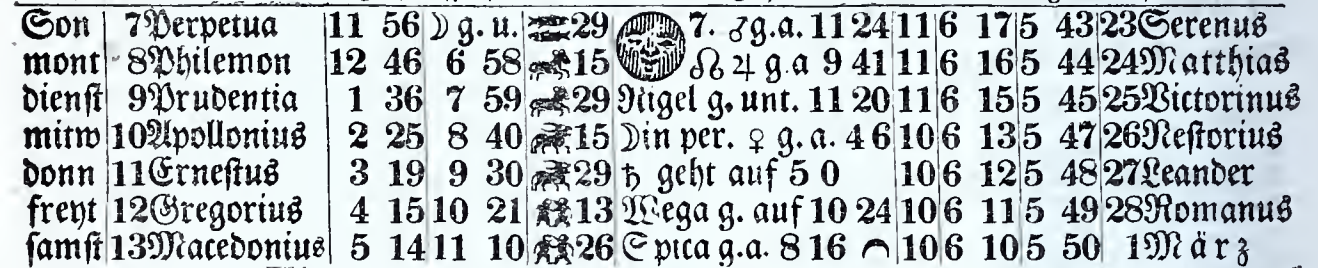 Son 7 Perpetua 11 56 ☽ g. u. 29 7. ♂ g.a. 11 24 11 6 17 5 43 23 Serenus
mont 8 Philemon 12 46 6 58 15 ☊ ♃ g.a 9 41 11 6 16 5 44 24 Matthias
dienst 9 Prudentia 1 36 7 59 29 Rigel g. unt. 11 20 11 6 15 5 45 25 Victorinus
mitw 10 Apollonius 2 25 8 40 15 ☽ in per. ♀ g. a. 4 6 10 6 13 5 47 26 Nestorius
donn 11 Ernestus 3 19 9 30 29 ♄ geht auf 5 0 10 6 12 5 48 27 Leander
freyt 12 Gregorius 4 15 10 21 13 Wega g. auf 10 24 10 6 11 5 49 28 Romanus
samst 13 Macedonius 5 14 11 10 26 Spica g.a. 8 16 10 6 10 5 50 1 März